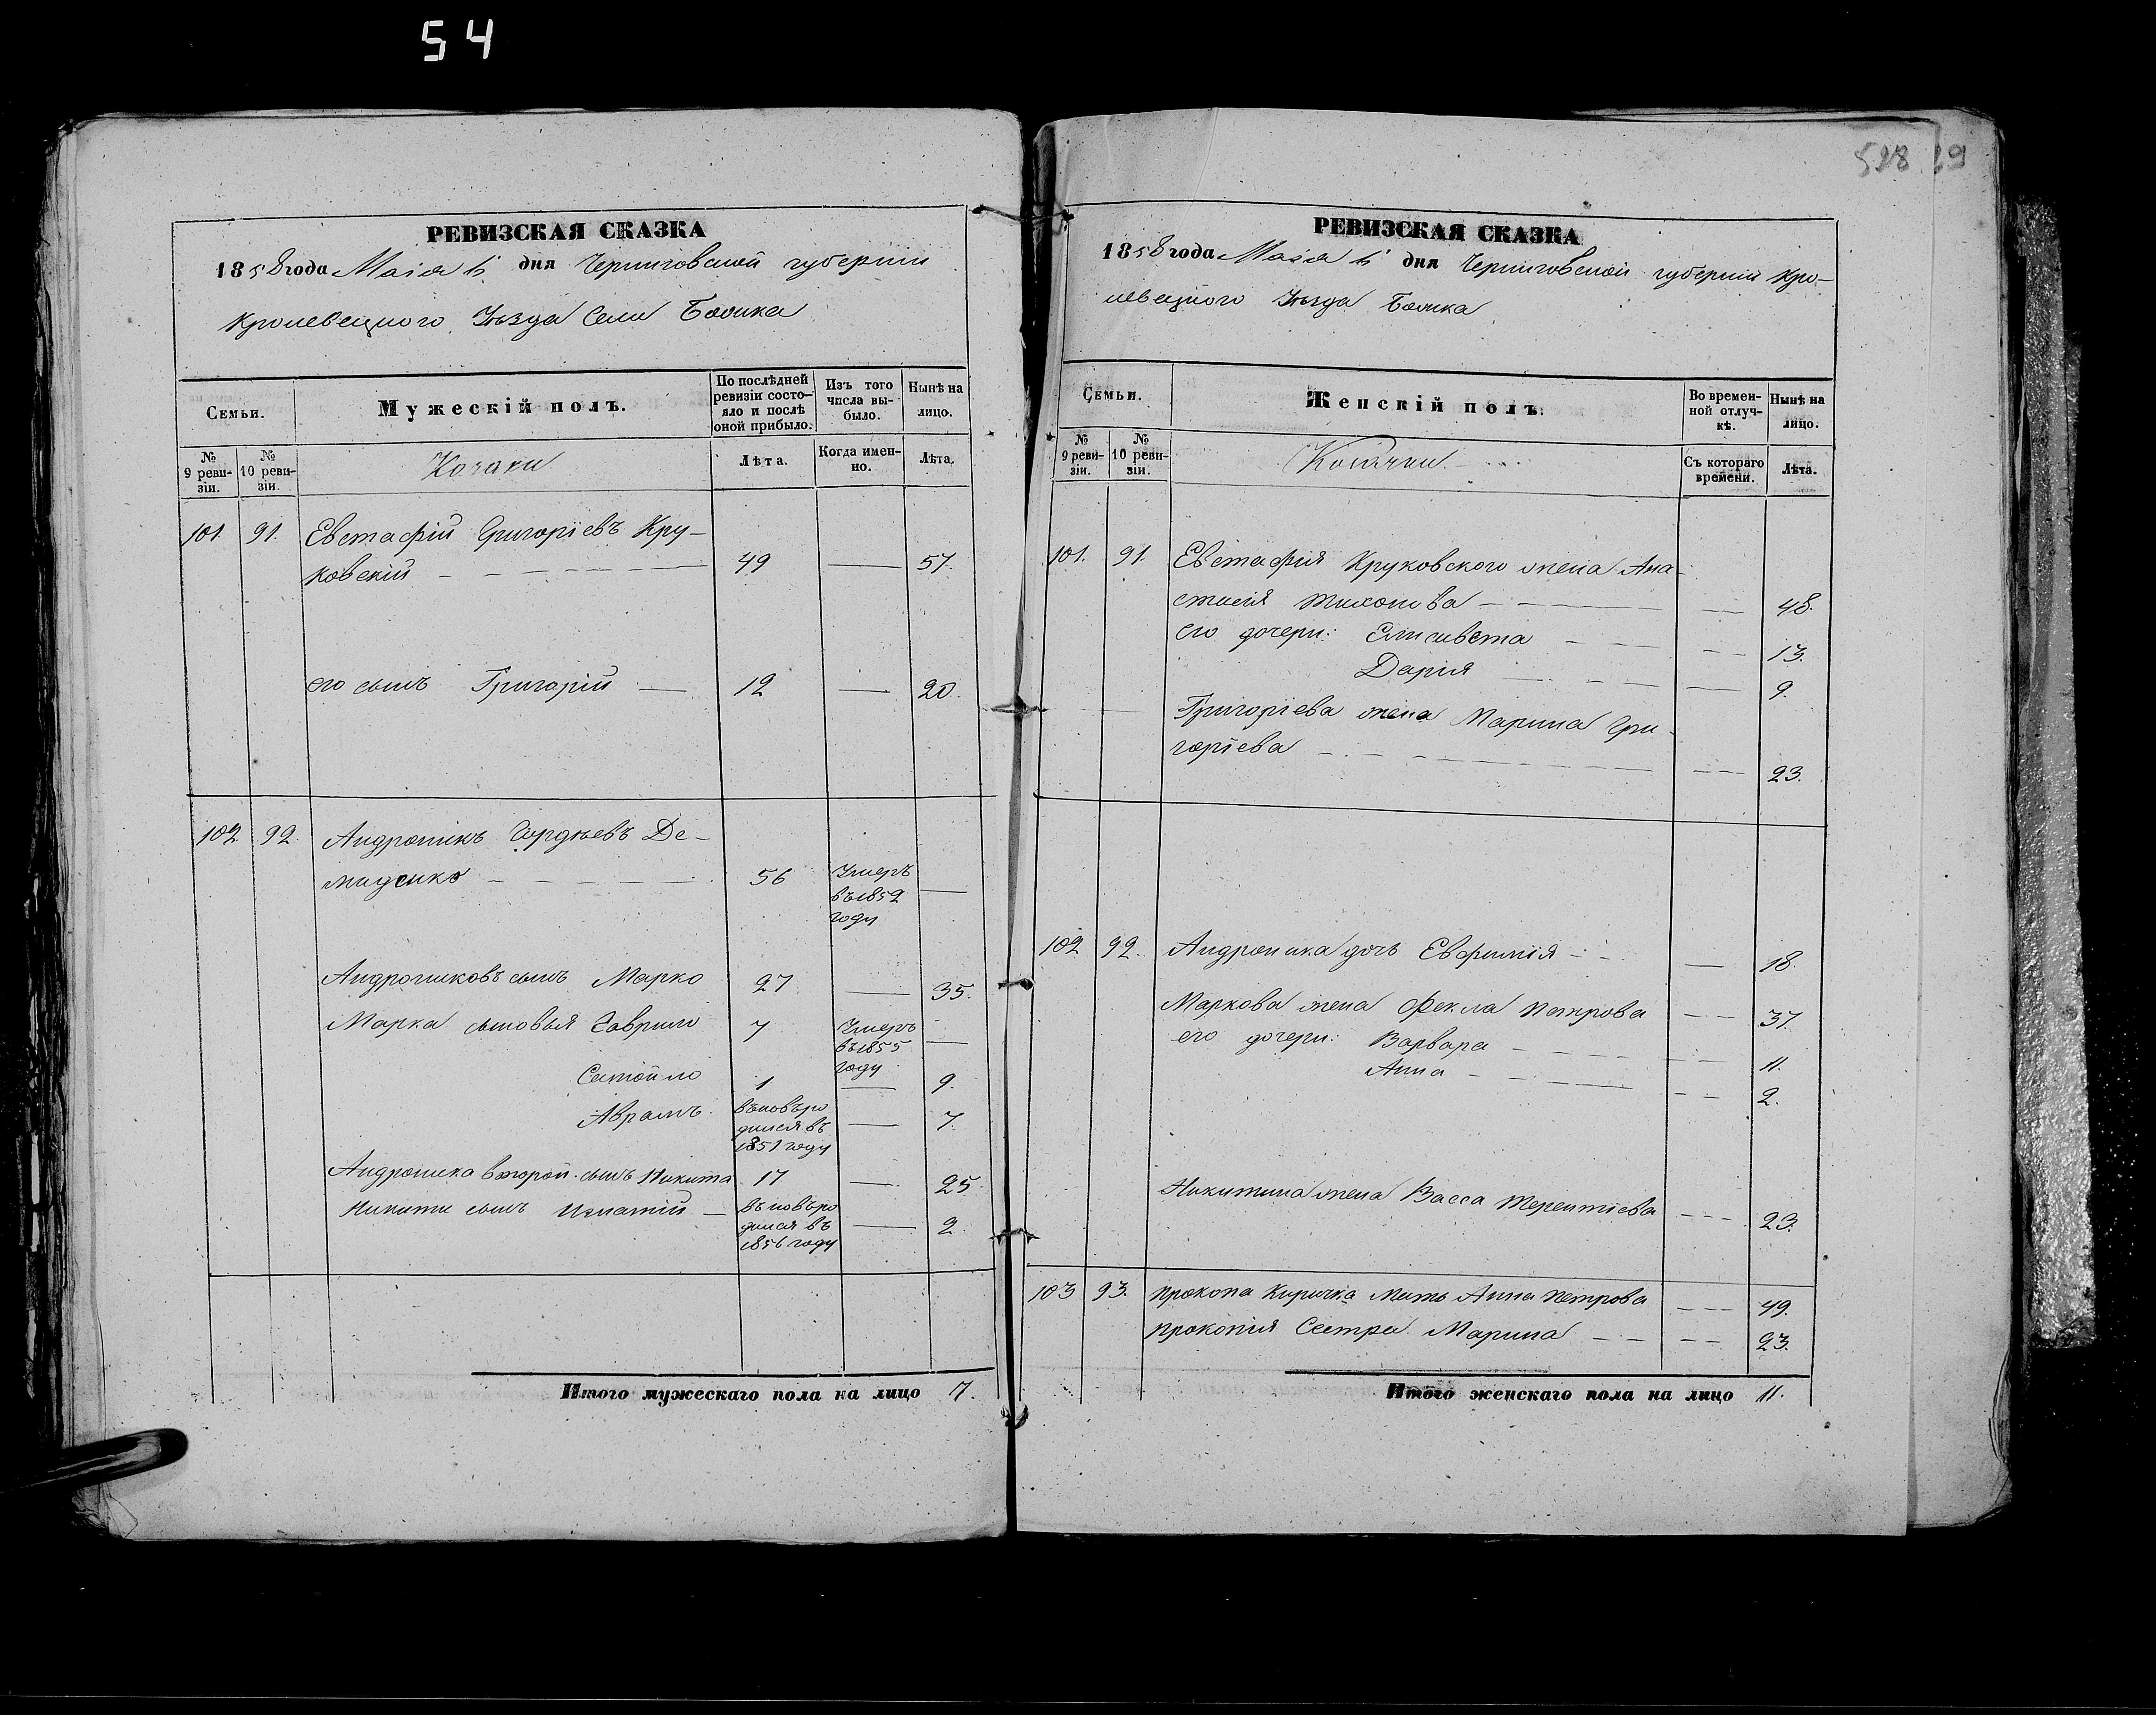 54
528 29
РЕВИЗСКАЯ СКАЗКА
1858 года Маія 6 дня Черниговской губерніи
Кролевецкого Уѣзда Села
Семьи.
Мужескій полъ.
По послѣдней ревизіи состо-
яло и послѣ
оной прибыло.
Изъ того
числа вы-
было.
Нынѣ на
лицо.
№
9 реви-
зіи.
№
10 реви-
зіи.
Козаки
Лѣта.
Когда имен-
но.
Лѣта.
101. 91. Евстафій Григоріевъ Кру-
ковскій 49 — 57.
его сынъ Григорій — 12 — 20.
102 92. Андроникъ Гордѣевъ Де-
миденко 56 Умеръ —
въ 1852
году
Андрониковъ сынъ Марко 27 — 35.
Марка сыновья Гаврило 7 Умеръ —
въ 1855
году
Самойло 1 — 9.
Аврамъ вновьро
дился въ — 7.
1851 году
Андроника второй сынъ Никита 17 — 25.
Никиты сынъ Игнатій — вновьро
дился въ — 2.
1856 году
Итого мужескаго пола на лицо 7.
РЕВИЗСКАЯ СКАЗКА
1858 года Маія 6 дня Черниговской губерніи Кро-
левецкого Уѣзда
Семьи.
Женскій полъ.
Во времен-
ной отлуч-
кѣ.
Нынѣ на
лицо.
№
9 реви-
зіи.
№
10 реви-
зіи.
Козачки
Съ котораго
времени.
Лѣта.
101. 91. Евстафія Круковского жена Ана-
стасія Тихонова — 48.
его дочери: Елисавета — 13.
Дарія — 9.
Григоріева жена Марина Гри-
горіева — 23.
102 92. Андроника дочь Евфимія — 18.
Маркова жена Фекла Петрова — 37.
его дочери: Варвара — 11.
Анна — 2.
Никитина жена Васса Терентіева — 23.
103 93. Прокопа Киричка мать Анна Петрова — 49.
Прокопія Сестра Марина — 23.
Итого женскаго пола на лицо 11.